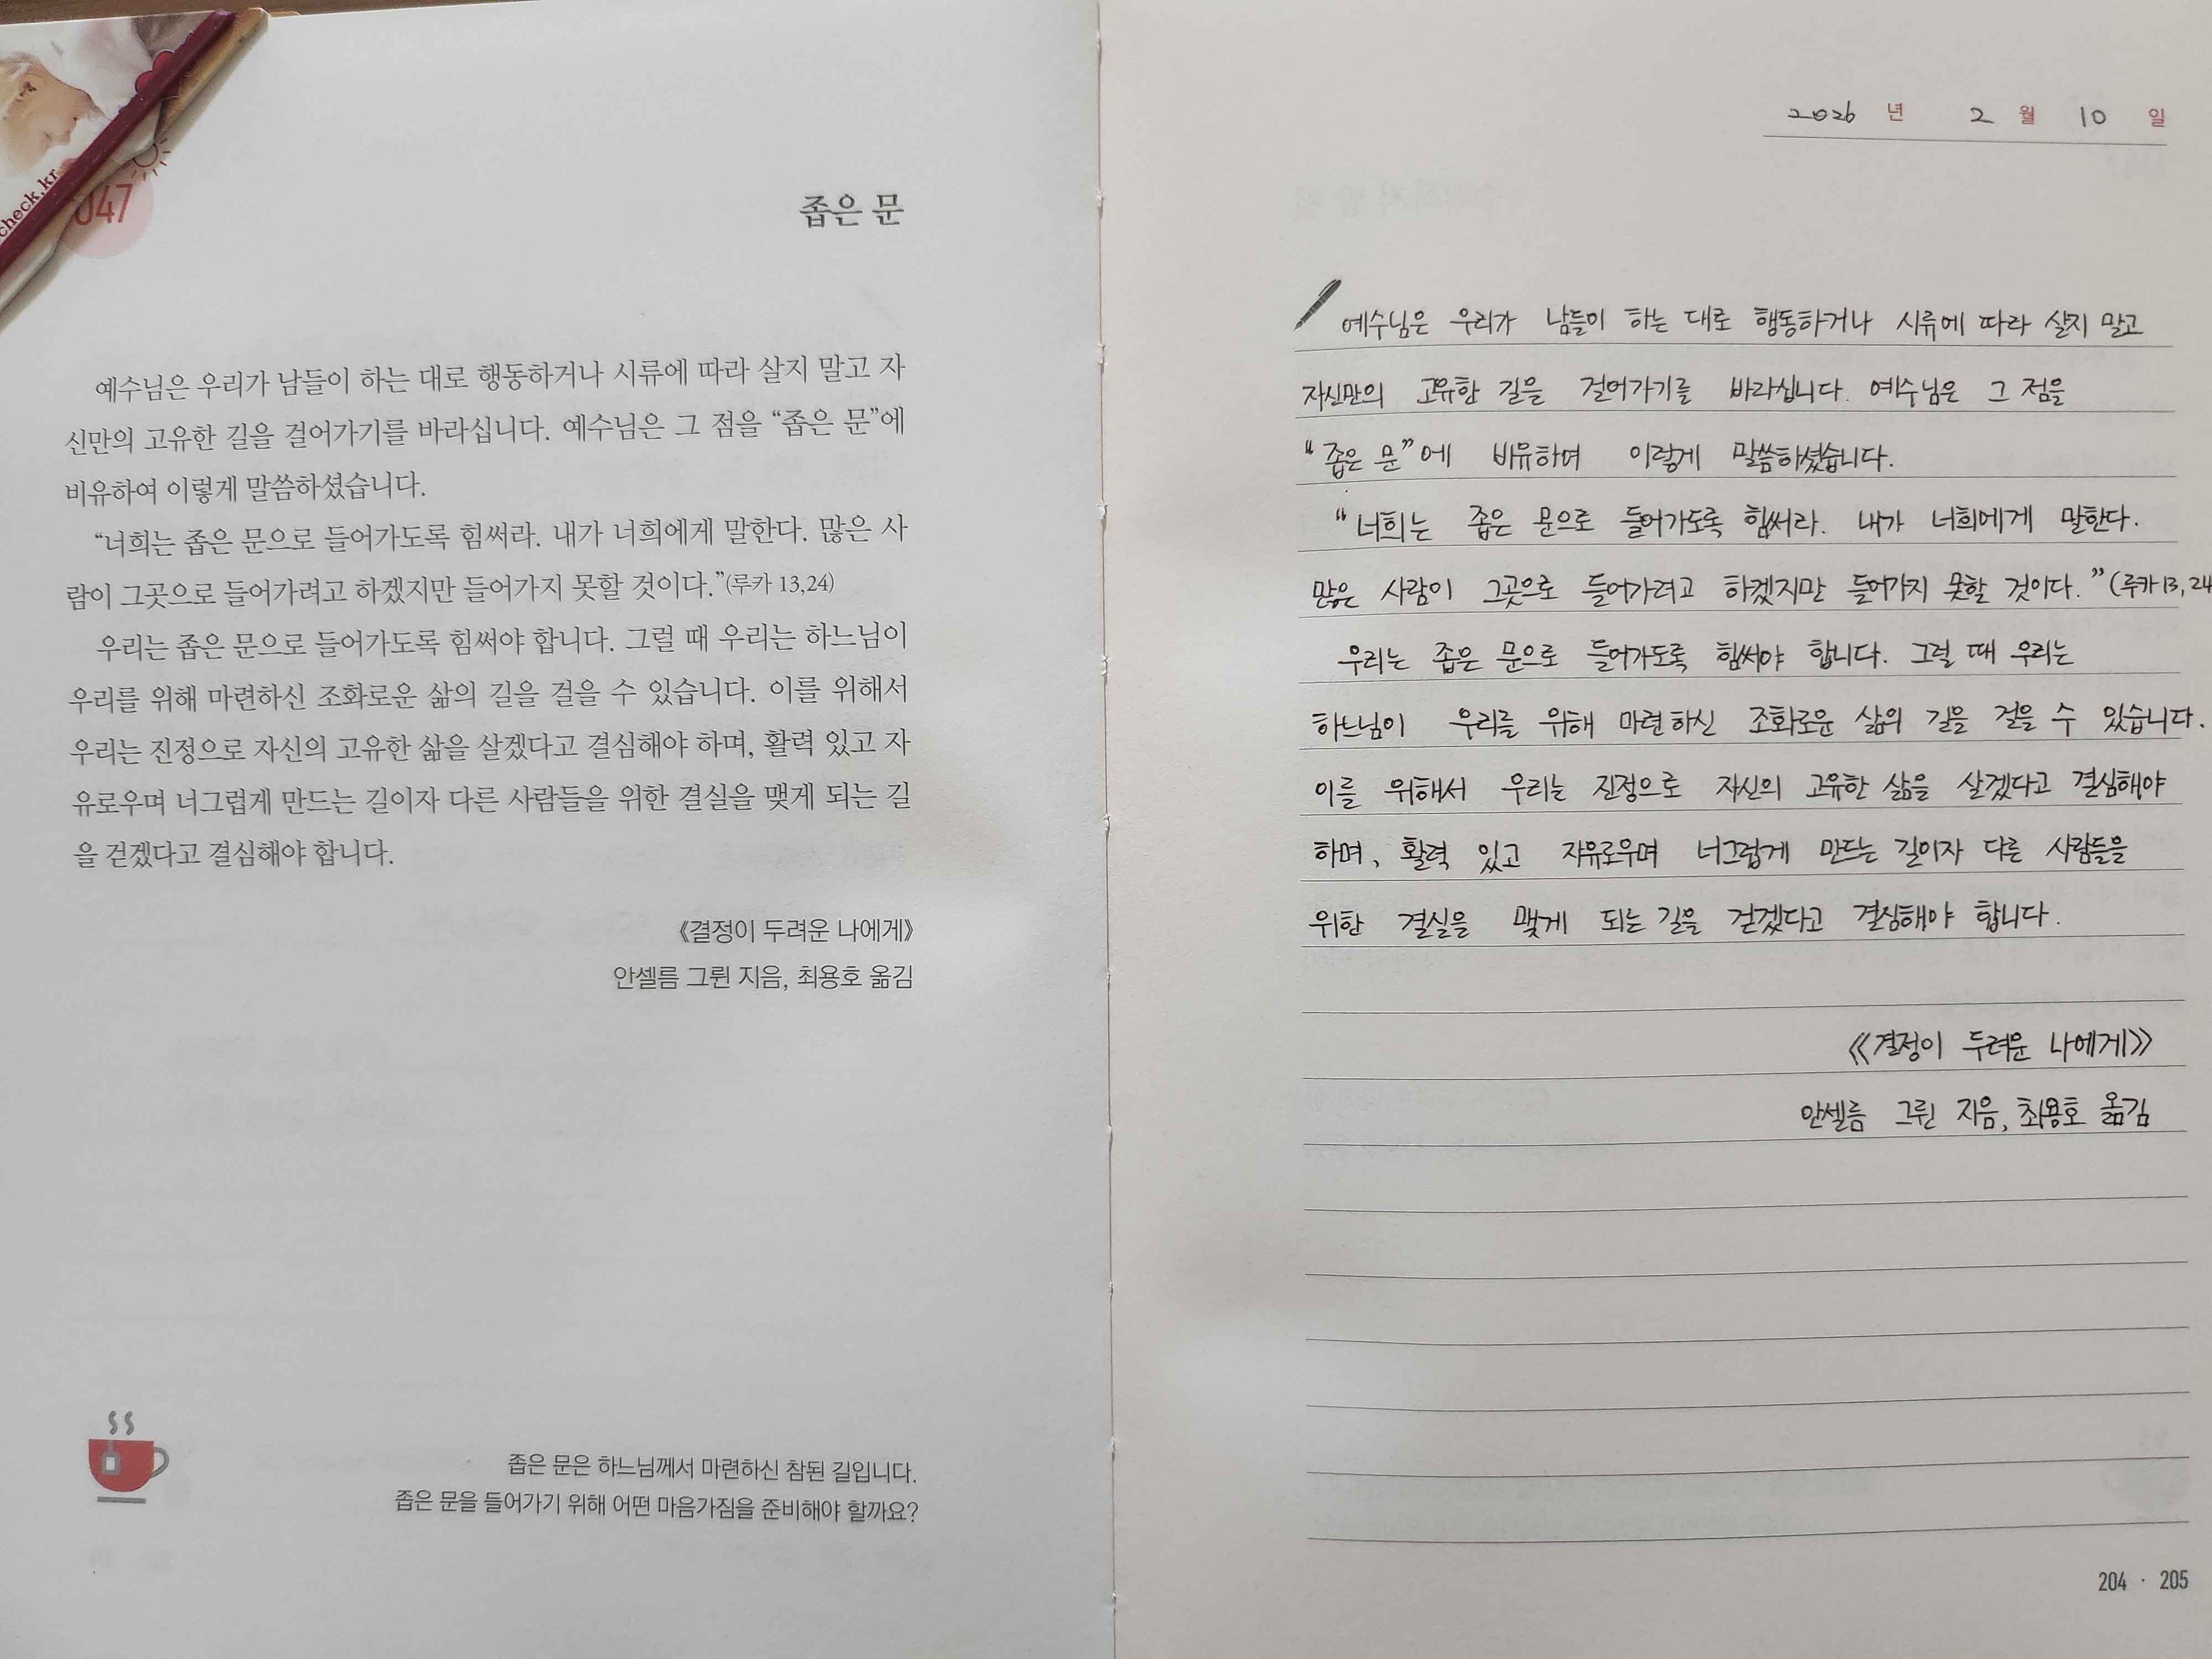 check.kr
047
좁은 문
예수님은 우리가 남들이 하는 대로 행동하거나 시류에 따라 살지 말고 자
신만의 고유한 길을 걸어가기를 바라십니다. 예수님은 그 점을 “좁은 문”에
비유하여 이렇게 말씀하셨습니다.
“너희는 좁은 문으로 들어가도록 힘써라. 내가 너희에게 말한다. 많은 사
람이 그곳으로 들어가려고 하겠지만 들어가지 못할 것이다.”(루카 13,24)
우리는 좁은 문으로 들어가도록 힘써야 합니다. 그럴 때 우리는 하느님이
우리를 위해 마련하신 조화로운 삶의 길을 걸을 수 있습니다. 이를 위해서
우리는 진정으로 자신의 고유한 삶을 살겠다고 결심해야 하며, 활력 있고 자
유로우며 너그럽게 만드는 길이자 다른 사람들을 위한 결실을 맺게 되는 길
을 걷겠다고 결심해야 합니다.
《결정이 두려운 나에게》
안셀름 그륀 지음, 최용호 옮김
좁은 문은 하느님께서 마련하신 참된 길입니다.
좁은 문을 들어가기 위해 어떤 마음가짐을 준비해야 할까요?
2026 년 2 월 10 일
예수님은 우리가 남들이 하는 대로 행동하거나 시류에 따라 살지 말고
자신만의 고유한 길을 걸어가기를 바라십니다. 예수님은 그 점을
“좁은 문”에 비유하여 이렇게 말씀하셨습니다.
“너희는 좁은 문으로 들어가도록 힘써라. 내가 너희에게 말한다.
많은 사람이 그곳으로 들어가려고 하겠지만 들어가지 못할 것이다.”(루카13,24
우리는 좁은 문으로 들어가도록 힘써야 합니다. 그럴 때 우리는
하느님이 우리를 위해 마련하신 조화로운 삶의 길을 걸을 수 있습니다.
이를 위해서 우리는 진정으로 자신의 고유한 삶을 살겠다고 결심해야
하며, 활력 있고 자유로우며 너그럽게 만드는 길이자 다른 사람들을
위한 결실을 맺게 되는 길을 걷겠다고 결심해야 합니다.
《결정이 두려운 나에게》
안셀름 그륀 지음, 최용호 옮김
204 · 205